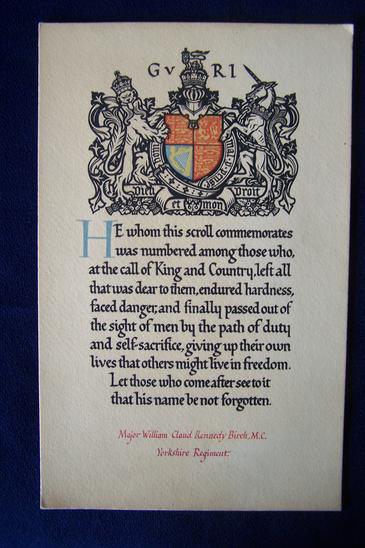 G V R I
Dieu et mon Droit
HE whom this scroll commemorates
was numbered among those who,
at the call of King and Country, left all
that was dear to them, endured hardness,
faced danger, and finally passed out of
the sight of men by the path of duty
and self-sacrifice, giving up their own
lives that others might live in freedom.
Let those who come after see to it
that his name be not forgotten.
Major William Claud Kennedy Birch, M.C.
Yorkshire Regiment.